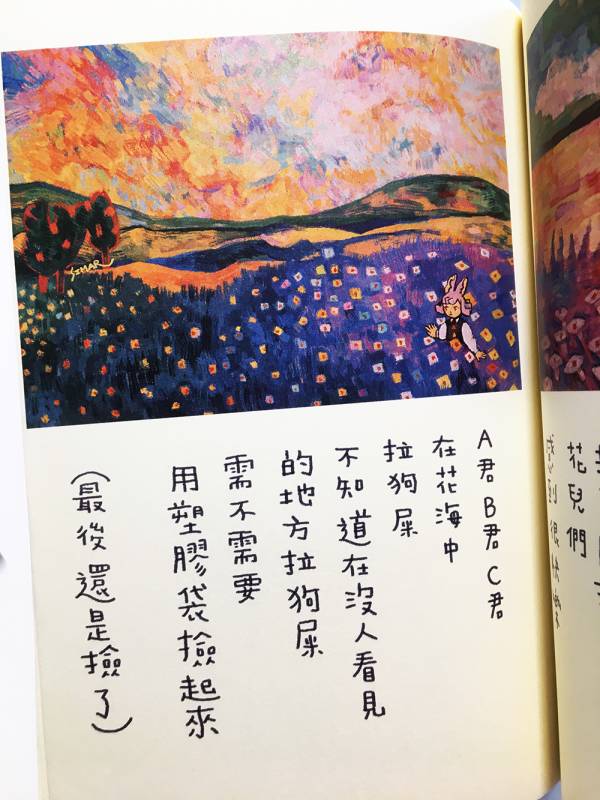 SIMAR
A君 B君 C君
在花海中
拉狗屎
不知道在沒人看見
的地方拉狗屎
需不需要
用塑膠袋撿起來
(最後還是撿了)
花兒們
感到很快樂